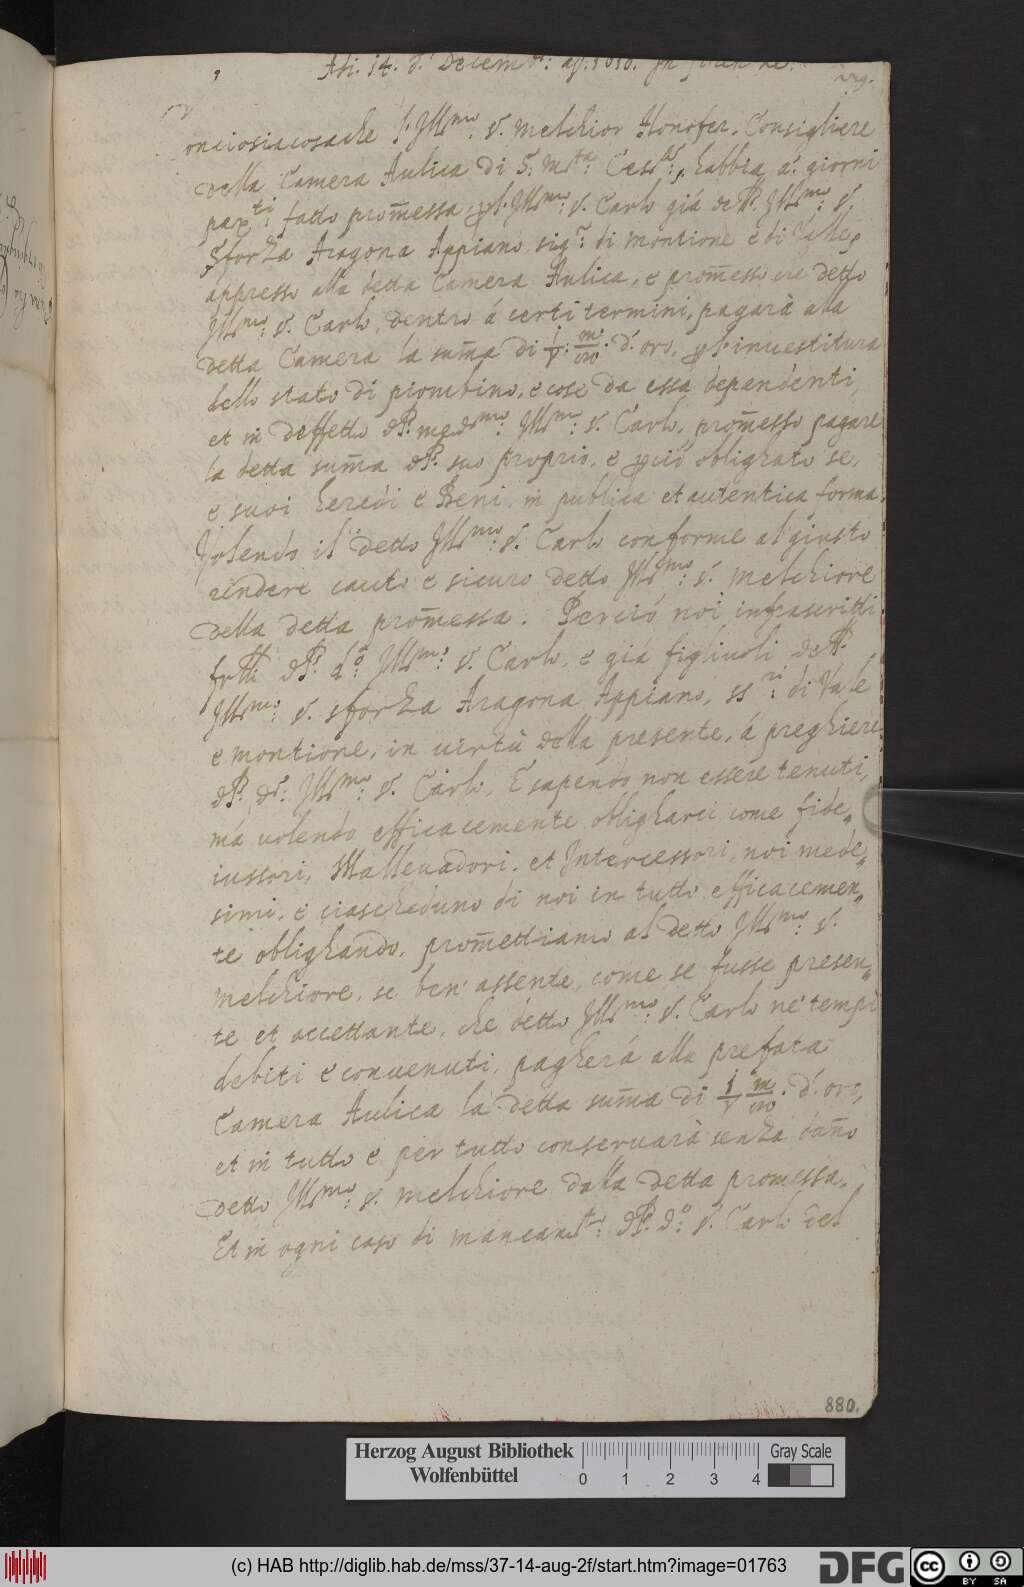 Adi. 14. d. Decemb: 1610. In
onciosiacosache l'Ill.mo S. Melchior Honofer. Consigliere
della Camera Aulica di S. M.ta Ces.a, habbia a' giorni
pas.ti fatto prom̄essa p l'Ill.mo S. Carlo giá del Ill.mo S.
Sforza Aragona Appiano sig.r di montione e di Valle,
appresso alla detta Camera Aulica, e prom̄esso che detto
Ill.mo S. Carlo, dentro á certi termini, pagarà alla
detta Camera la sum̄a di d'oro, p l'inuestitura
dello stato di piombino, e cose da essa dependenti,
et in deffetto del med.mo Ill.mo S. Carlo, prom̄esso pagare
la detta sum̄a del suo proprio, e p ciò oblighato se,
e suoi heredi e Beni in publica et autentica forma.
Volendo il detto Ill.mo S. Carlo conforme al giusto
rendere cauto e sicuro detto Ill.mo S. Melchiore
della detta prom̄essa. Perció noi infrascritti
fr̄lli del d.o Ill.mo S. Carlo, e giá figliuoli dell
Ill.mo S. Sforza Aragona Appiano, SS.ri di Vale
e montione, in uirtù della presente, á preghiere
del d.o Ill.mo S. Carlo, E sapendo non essere tenuti,
má uolendo efficacemente obligharci come fide„
iussori, Malleuadori, et Intercessori, noi mede„
simi, e ciascheduno di noi in tutto efficacemen„
te oblighando, prom̄ettiamo al detto Ill.mo S.
Melchiore, se ben' assente, come se fusse presen„
te et accettante, che detto Ill.mo S. Carlo ne' tempi
debiti e conuenuti, pagherá alla prefata
Camera Aulica la detta sum̄a di d'oro,
et in tutto e per tutto conseruarà senza dan̄o
detto Ill.mo S. Melchiore dalla detta promessa.
Et in ogni caso di mancam.to del d.o S. Carlo del
880.
Herzog August Bibliothek
Wolfenbüttel
0 1 2 3 4
Gray Scale
(c) HAB http://diglib.hab.de/mss/37-14-aug-2f/start.htm?image=01763
DFG
cc BY SA